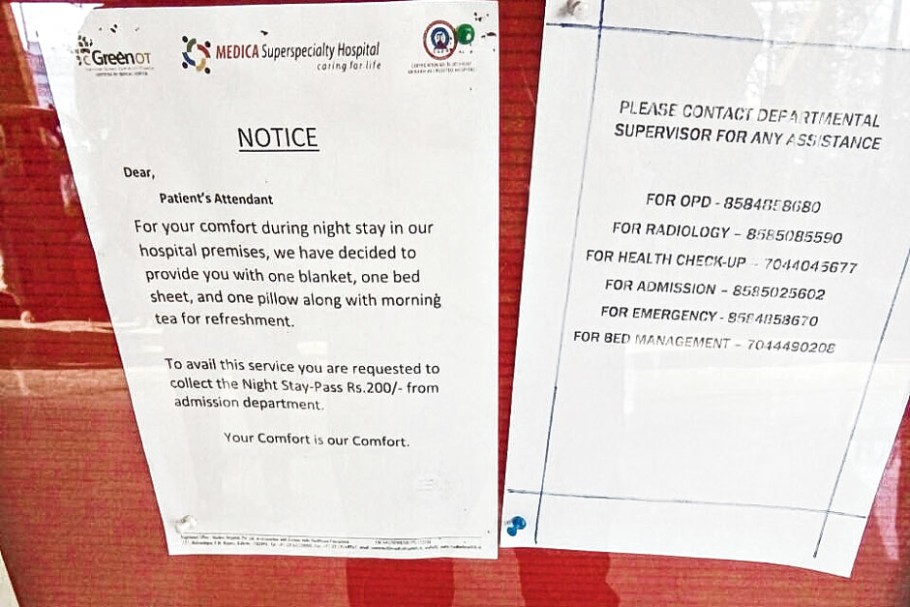 GreenOT
MEDICA Superspecialty Hospital
caring for life
NOTICE
Dear,
Patient's Attendant
For your comfort during night stay in our
hospital premises, we have decided to
provide you with one blanket, one bed
sheet, and one pillow along with morning
tea for refreshment.
To avail this service you are requested to
collect the Night Stay-Pass Rs.200/- from
admission department.
Your Comfort is our Comfort.
PLEASE CONTACT DEPARTMENTAL
SUPERVISOR FOR ANY ASSISTANCE
FOR OPD - 8584858680
FOR RADIOLOGY - 8585085590
FOR HEALTH CHECK-UP - 7044045677
FOR ADMISSION - 8585025602
FOR EMERGENCY - 8584858670
FOR BED MANAGEMENT - 7044490208